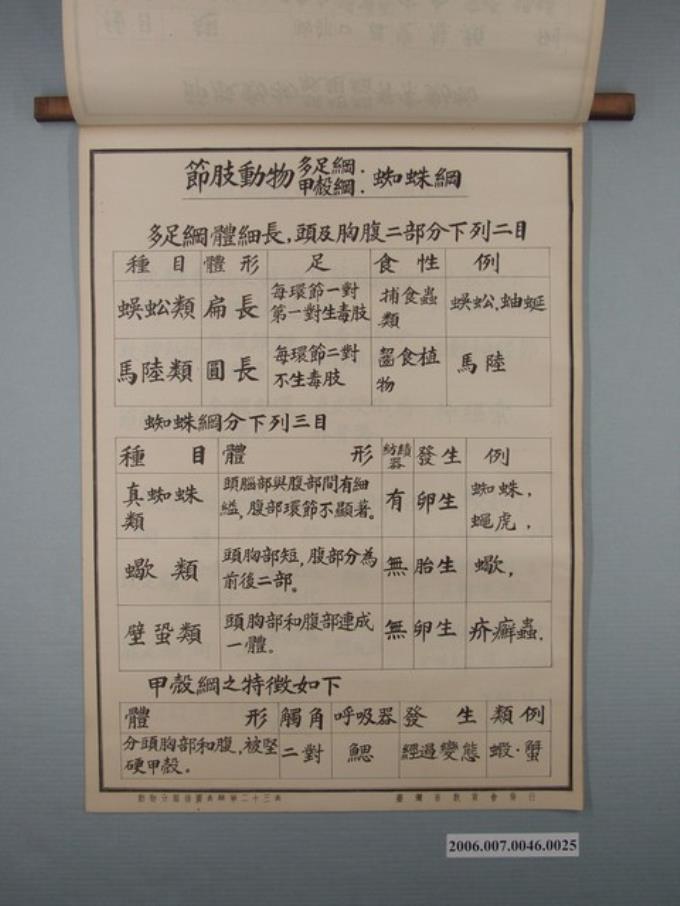 節肢動物 多足綱. 甲殼綱. 蜘蛛綱
多足綱體細長，頭及胸腹二部分下列二目
種目 體形 足 食性 例
蜈蚣類 扁長 每環節一對 第一對生毒肢 捕食蟲類 蜈蚣、蚰蜒
馬陸類 圓長 每環節二對 不生毒肢 齧食植物 馬陸
蜘蛛綱分下列三目
種目 體形 紡績器 發生 例
真蜘蛛類 頭腦部與腹部間有細縊，腹部環節不顯著。 有 卵生 蜘蛛，蠅虎，
蠍類 頭胸部短，腹部分為前後二部。 無 胎生 蠍，
壁蝨類 頭胸部和腹部連成一體。 無 卵生 疥癬蟲.
甲殼綱之特徵如下
體形 觸角 呼吸器 發生 類例
分頭胸部和腹，被堅硬甲殼。 二對 鰓 經過變態 蝦·蟹
臺灣省教育會發行
2006.007.0046.0025